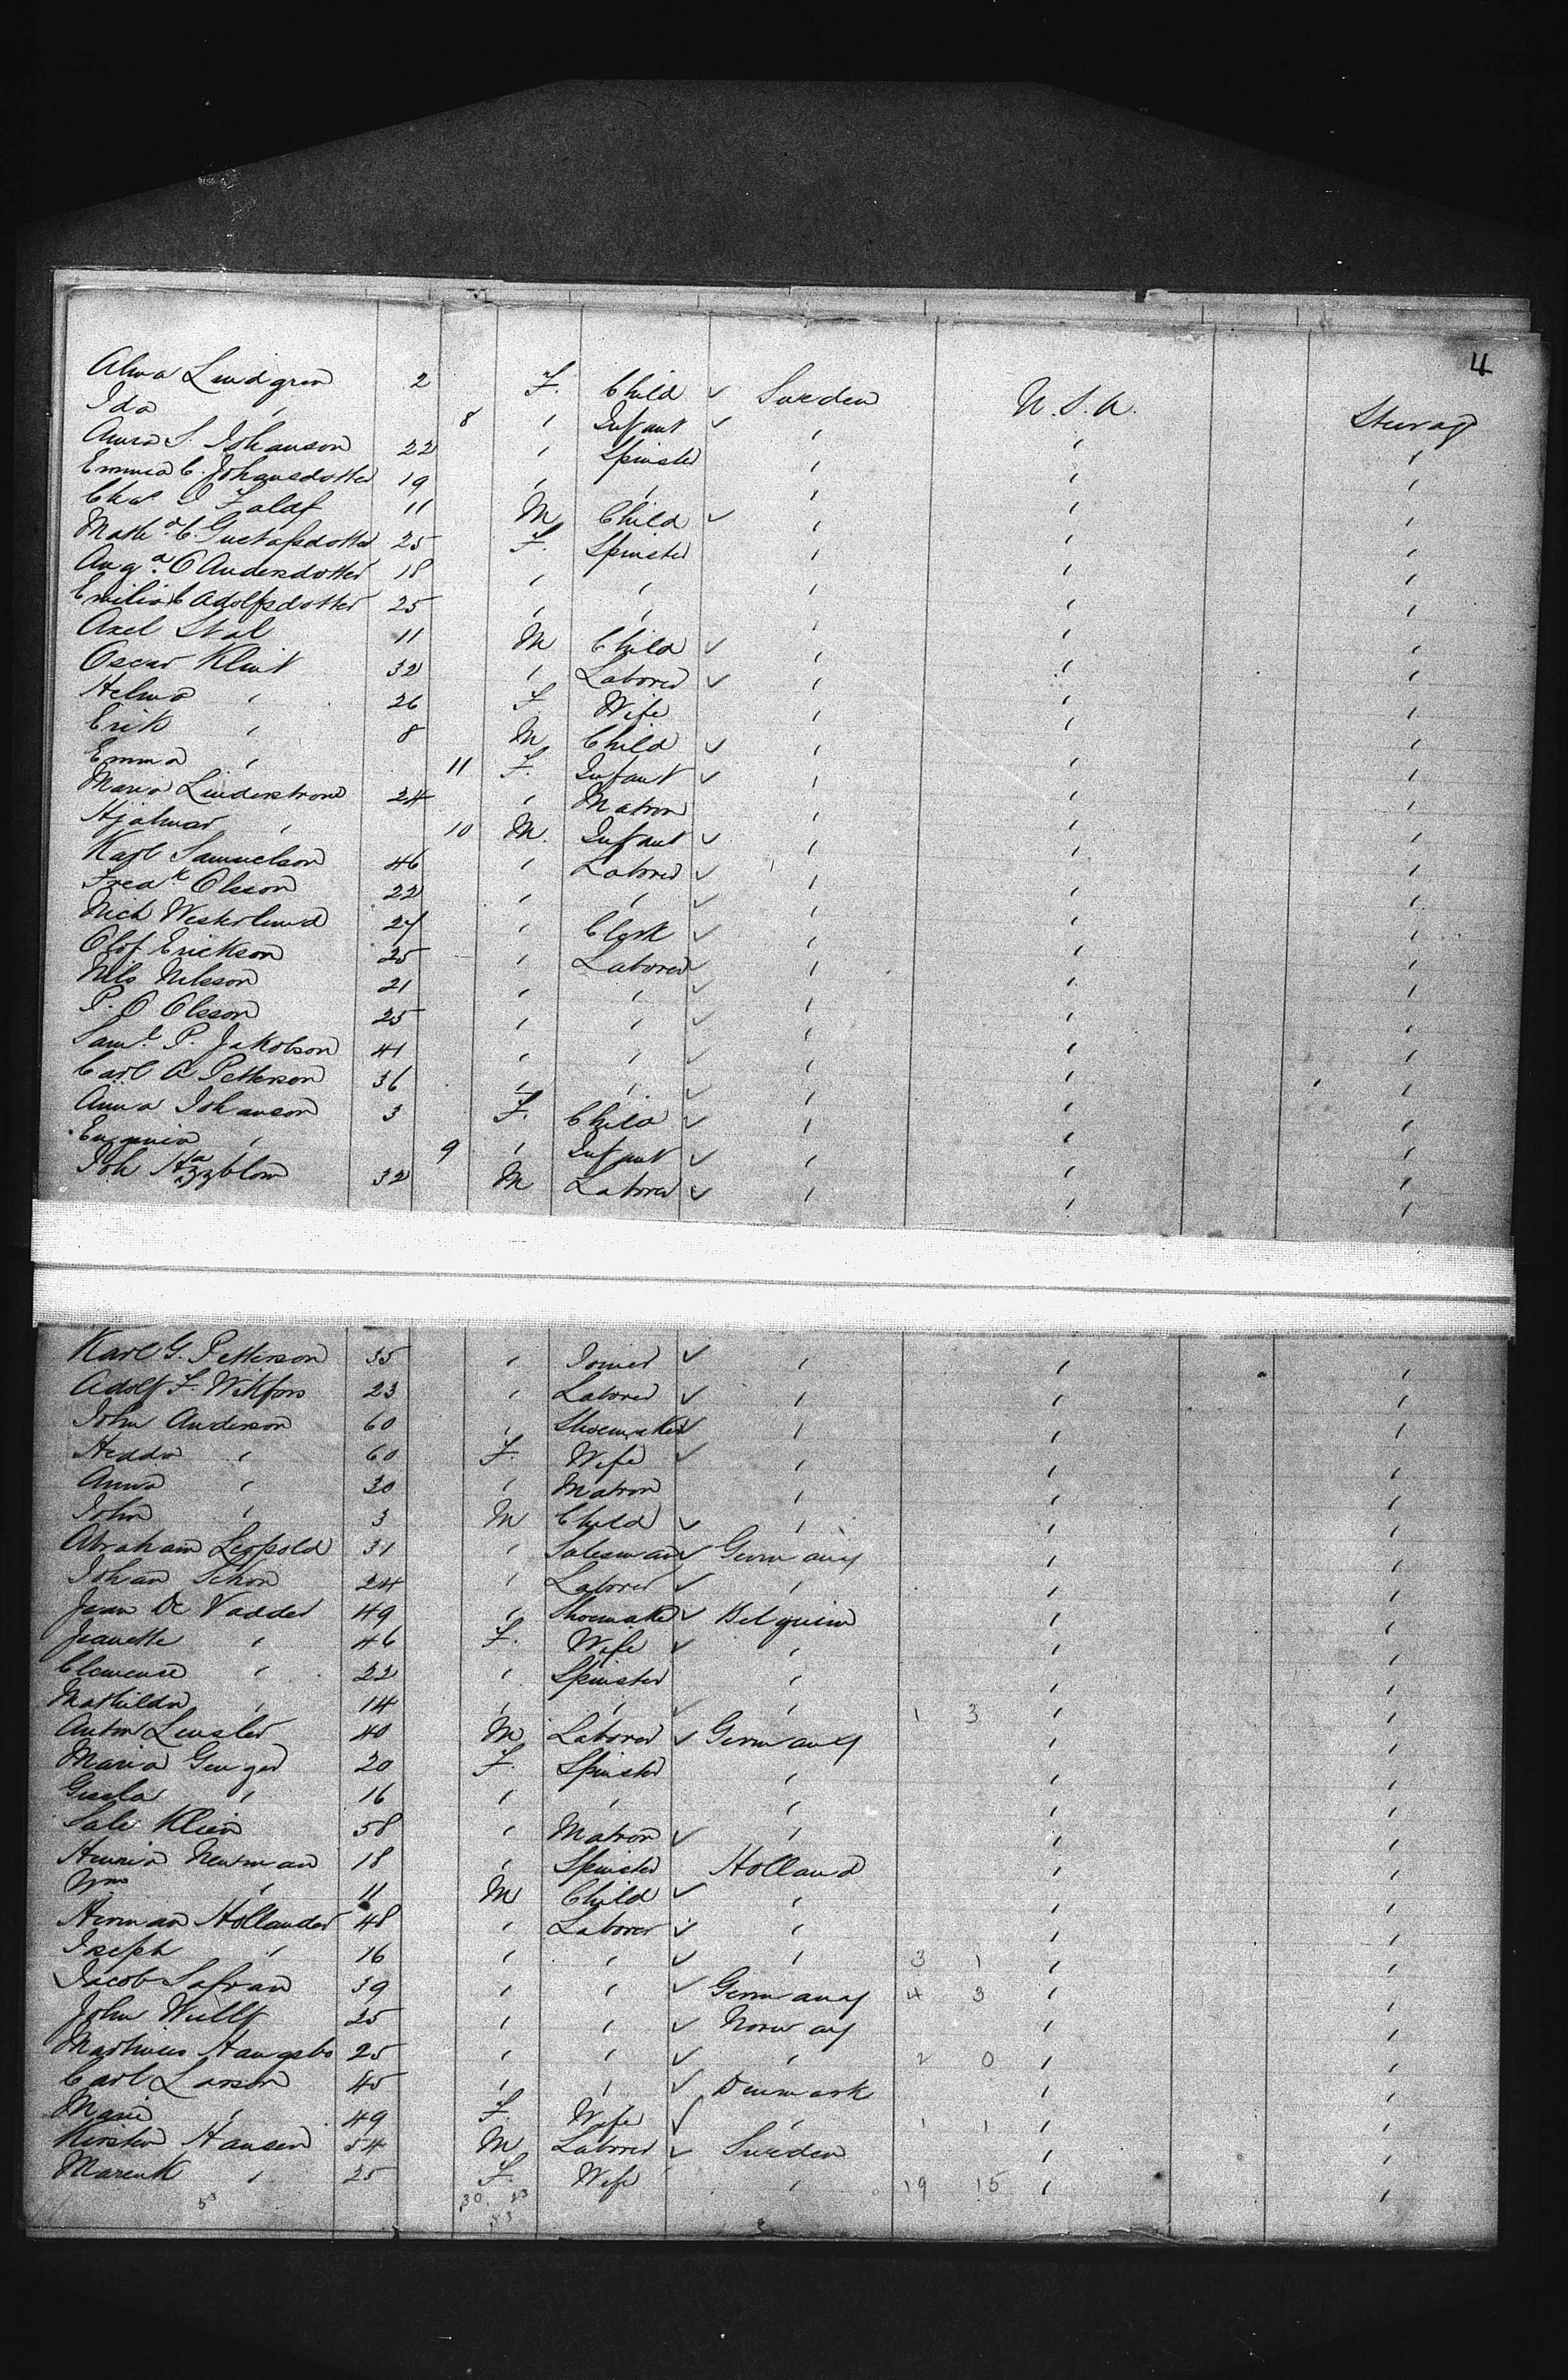 4
Alma Lindgren 2 F. Child ✓ Sweden U.S.A. Steerage
Ida " 8 " Infant ✓ " " "
Anna S. Johanson 22 " Spinster " " "
Emma C. Johansdotter 19 " " " " "
Chas J Falaf 11 M Child ✓ " " "
Math.a C. Gustafsdotter 25 F. Spinster " " "
Aug.a C Andersdotter 18 " " " " "
Emilia C Adolfsdotter 25 " " " " "
Axel Stal 11 M Child ✓ " " "
Oscar Klint 32 " Laborer ✓ " " "
Helma " 26 F Wife " " "
Erik " 8 M Child ✓ " " "
Emma " 11 F. Infant ✓ " " "
Maria Linderstrom 24 " Matron " " "
Hjalmar " 10 M. Infant ✓ " " "
Karl Samuelson 46 " Laborer ✓ " " "
Fredk Olsson 22 " " ✓ " " "
Nich Westerlund 27 " Clerk ✓ " " "
Olof Erickson 25 " Laborer ✓ " " "
Nils Nilsson 21 " " ✓ " " "
P. O Olsson 25 " " ✓ " " "
Saml. P. Jakobson 41 " " ✓ " " "
Carl A Petterson 36 " " ✓ " " "
Anna Johanson 3 F. Child ✓ " " "
Eugenia " 9 " Infant ✓ " " "
Joh Hazzblom 32 M Laborer ✓ " " "
Karl G. Petterson 35 " Joiner ✓ " " "
Adolf F. Wikfors 23 " Laborer ✓ " " "
John Anderson 60 " Shoemaker ✓ " " "
Hedda " 60 F. Wife ✓ " " "
Anna " 30 " Matron " " "
John " 3 M Child ✓ " " "
Abraham Leopold 31 " Salesman ✓ Germany " "
Johan Schon 24 " Laborer ✓ " " "
Jean De Vadder 49 " Shoemaker ✓ Belgium " "
Jeanette " 46 F. Wife ✓ " " "
Clemence " 22 " Spinster " " "
Mathilda " 14 " " ✓ " 1 3 " "
Anton Lensler 40 M Laborer ✓ Germany " "
Maria Genger 20 F. Spinster " " "
Gisela " 16 " " " " "
Sali Klein 58 " Matron ✓ " " "
Newman 18 " Spinster Holland " "
Wm " 11 M Child ✓ " " "
Herman Hollander 48 " Laborer ✓ " " "
Joseph " 16 " " ✓ " 3 1 " "
Jacob Safran 39 " " ✓ Germany 4 3 " "
John 25 " " ✓ Norway " "
Mathias Haugsbo 25 " " ✓ " 2 0 " "
Carl Larson 45 " " ✓ Denmark " "
Marie " 49 F. Wife ✓ " 1 1 " "
Kirsten Hansen 54 M Laborer ✓ Sweden " "
Maren K " 25 F. Wife " 19 15 " "
53 30 23
53